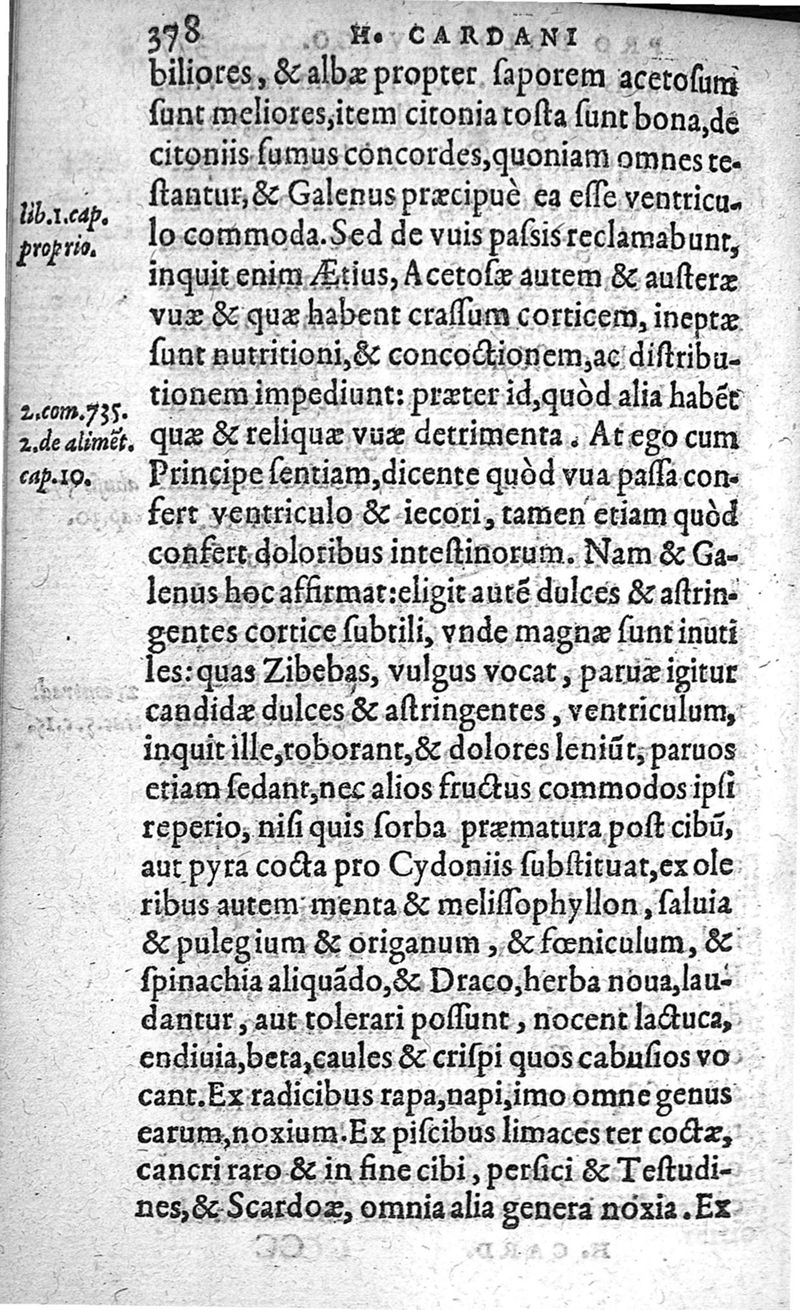 378 H. CARDANI
biliores, & albæ propter saporem acetosum
sunt meliores, item citonia tosta sunt bona, de
citoniis sumus concordes, quoniam omnes te-
stantur, & Galenus præcipuè ea esse ventricu-
lib.1.cap.
proprio.
lo commoda. Sed de vuis passis reclamabunt,
inquit enim Ætius, Acetosæ autem & austeræ
vuæ & quæ habent crassum corticem, ineptæ
sunt nutritioni, & concoctionem, ac distribu-
tionem impediunt: præter id, quòd alia habēt
2.com.735.
2.de alimēt.
cap.10.
quæ & reliquæ vuæ detrimenta. At ego cum
Principe sentiam, dicente quòd vua passa con-
fert ventriculo & iecori, tamen etiam quòd
confert doloribus intestinorum. Nam & Ga-
lenus hoc affirmat: eligit autē dulces & astrin-
gentes cortice subtili, vnde magnæ sunt inuti
les: quas Zibebas, vulgus vocat, paruæ igitur
candidæ dulces & astringentes, ventriculum,
inquit ille, roborant, & dolores leniūt, paruos
etiam sedant, nec alios fructus commodos ipsi
reperio, nisi quis sorba præmatura post cibū,
aut pyra cocta pro Cydoniis substituat, ex ole
ribus autem menta & melissophyllon, saluia
& pulegium & origanum, & fœniculum, &
spinachia aliquādo, & Draco, herba noua, lau-
dantur, aut tolerari possunt, nocent lactuca,
endiuia, beta, caules & crispi quos cabusios vo
cant. Ex radicibus rapa, napi, imo omne genus
earum, noxium. Ex piscibus limaces ter coctæ,
cancri raro & in fine cibi, persici & Testudi-
nes, & Scardoæ, omnia alia genera noxia. Ex